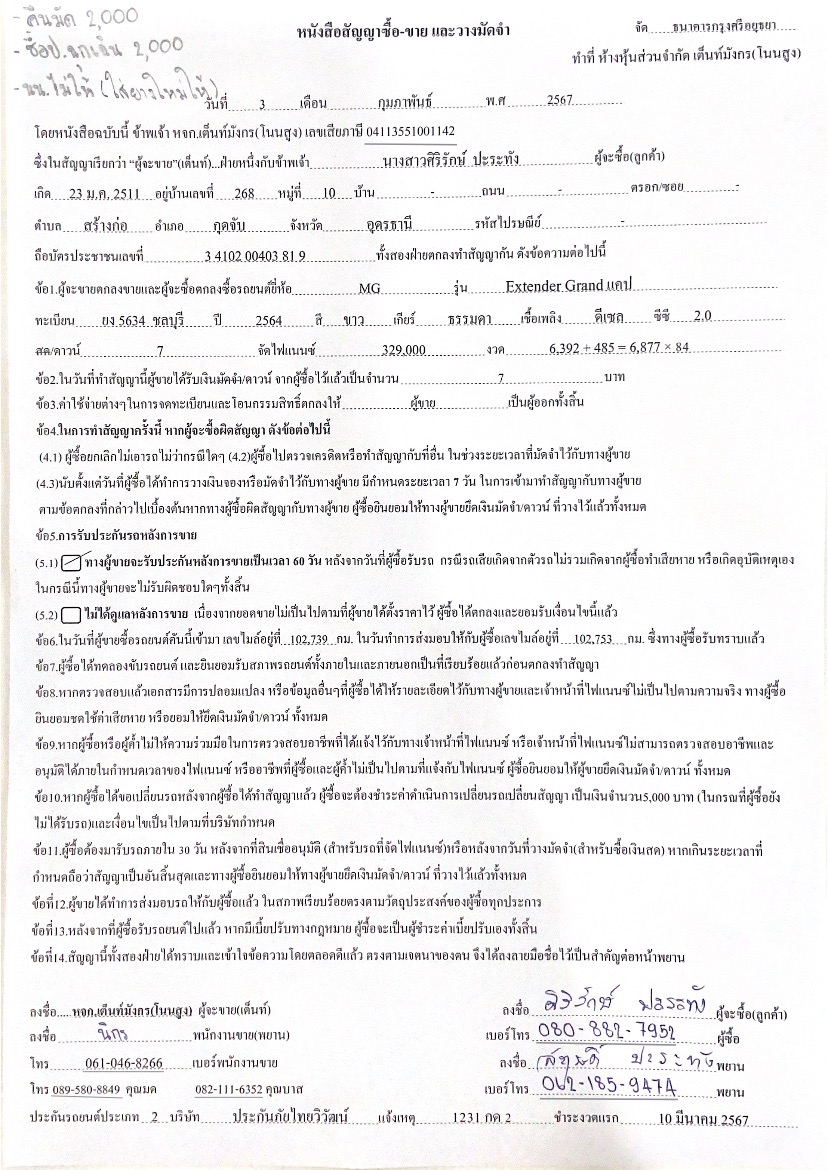 - คืนมัด 2,000
- ซื้อป.ฉุกเฉิน 2,000
- นน.ไม่ให้ (ใส่ยางใหม่ให้)
หนังสือสัญญาซื้อ-ขาย และวางมัดจำ
จัด ธนาคารกรุงศรีอยุธยา
ทำที่ ห้างหุ้นส่วนจำกัด เต็นท์มังกร(โนนสูง)
วันที่ 3 เดือน กุมภาพันธ์ พ.ศ 2567
โดยหนังสือฉบับนี้ ข้าพเจ้า หจก.เต็นท์มังกร(โนนสูง) เลขเสียภาษี 04113551001142
ซึ่งในสัญญาเรียกว่า "ผู้จะขาย"(เต็นท์)...ฝ่ายหนึ่งกับข้าพเจ้า นางสาวศิริรักษ์ ปะระทัง ผู้จะซื้อ(ลูกค้า)
เกิด 23 ม.ค. 2511 อยู่บ้านเลขที่ 268 หมู่ที่ 10 บ้าน - ถนน - ตรอก/ซอย -
ตำบล สร้างก่อ อำเภอ กุดจับ จังหวัด อุดรธานี รหัสไปรษณีย์ -
ถือบัตรประชาชนเลขที่ 3 4102 00403 81 9 ทั้งสองฝ่ายตกลงทำสัญญากัน ดังข้อความต่อไปนี้
ข้อ1.ผู้จะขายตกลงขายและผู้จะซื้อตกลงซื้อรถยนต์ยี่ห้อ MG รุ่น Extender Grand แคป
ทะเบียน ยง 5634 ชลบุรี ปี 2564 สี ขาว เกียร์ ธรรมดา เชื้อเพลิง ดีเซล ซีซี 2.0
สด/ดาวน์ 7 จัดไฟแนนซ์ 329,000 งวด 6,392 + 485 = 6,877 × 84
ข้อ2.ในวันที่ทำสัญญานี้ผู้ขายได้รับเงินมัดจำ/ดาวน์ จากผู้ซื้อไว้แล้วเป็นจำนวน 7 บาท
ข้อ3.ค่าใช้จ่ายต่างๆในการจดทะเบียนและโอนกรรมสิทธิ์ตกลงให้ ผู้ขาย เป็นผู้ออกทั้งสิ้น
ข้อ4.ในการทำสัญญาครั้งนี้ หากผู้จะซื้อผิดสัญญา ดังข้อต่อไปนี้
(4.1) ผู้ซื้อยกเลิกไม่เอารถไม่ว่ากรณีใดๆ (4.2)ผู้ซื้อไปตรวจเครดิตหรือทำสัญญากับที่อื่น ในช่วงระยะเวลาที่มัดจำไว้กับทางผู้ขาย
(4.3)นับตั้งแต่วันที่ผู้ซื้อได้ทำการวางเงินจองหรือมัดจำไว้กับทางผู้ขาย มีกำหนดระยะเวลา 7 วัน ในการเข้ามาทำสัญญากับทางผู้ขาย
ตามข้อตกลงที่กล่าวไปเบื้องต้นหากทางผู้ซื้อผิดสัญญากับทางผู้ขาย ผู้ซื้อยินยอมให้ทางผู้ขายยึดเงินมัดจำ/ดาวน์ ที่วางไว้แล้วทั้งหมด
ข้อ5.การรับประกันรถหลังการขาย
(5.1) ทางผู้ขายจะรับประกันหลังการขายเป็นเวลา 60 วัน หลังจากวันที่ผู้ซื้อรับรถ กรณีรถเสียเกิดจากตัวรถไม่รวมเกิดจากผู้ซื้อทำเสียหาย หรือเกิดอุบัติเหตุเอง
ในกรณีนี้ทางผู้ขายจะไม่รับผิดชอบใดๆทั้งสิ้น
(5.2) ไม่ได้ดูแลหลังการขาย เนื่องจากยอดขายไม่เป็นไปตามที่ผู้ขายได้ตั้งราคาไว้ ผู้ซื้อได้ตกลงและยอมรับเงื่อนไขนี้แล้ว
ข้อ6.ในวันที่ผู้ขายซื้อรถยนต์คันนี้เข้ามา เลขไมล์อยู่ที่ 102,739 กม. ในวันทำการส่งมอบให้กับผู้ซื้อเลขไมล์อยู่ที่ 102,753 กม. ซึ่งทางผู้ซื้อรับทราบแล้ว
ข้อ7.ผู้ซื้อได้ทดลองขับรถยนต์ และยินยอมรับสภาพรถยนต์ทั้งภายในและภายนอกเป็นที่เรียบร้อยแล้วก่อนตกลงทำสัญญา
ข้อ8.หากตรวจสอบแล้วเอกสารมีการปลอมแปลง หรือข้อมูลอื่นๆที่ผู้ซื้อได้ให้รายละเอียดไว้กับทางผู้ขายและเจ้าหน้าที่ไฟแนนซ์ไม่เป็นไปตามความจริง ทางผู้ซื้อ
ยินยอมชดใช้ค่าเสียหาย หรือยอมให้ยึดเงินมัดจำ/ดาวน์ ทั้งหมด
ข้อ9.หากผู้ซื้อหรือผู้ค้ำไม่ให้ความร่วมมือในการตรวจสอบอาชีพที่ได้แจ้งไว้กับทางเจ้าหน้าที่ไฟแนนซ์ หรือเจ้าหน้าที่ไฟแนนซ์ไม่สามารถตรวจสอบอาชีพและ
อนุมัติได้ภายในกำหนดเวลาของไฟแนนซ์ หรืออาชีพที่ผู้ซื้อและผู้ค้ำไม่เป็นไปตามที่แจ้งกับไฟแนนซ์ ผู้ซื้อยินยอมให้ผู้ขายยึดเงินมัดจำ/ดาวน์ ทั้งหมด
ข้อ10.หากผู้ซื้อได้ขอเปลี่ยนรถหลังจากผู้ซื้อได้ทำสัญญาแล้ว ผู้ซื้อจะต้องชำระค่าดำเนินการเปลี่ยนรถเปลี่ยนสัญญา เป็นเงินจำนวน5,000 บาท (ในกรณที่ผู้ซื้อยัง
ไม่ได้รับรถ)และเงื่อนไขเป็นไปตามที่บริษัทกำหนด
ข้อ11.ผู้ซื้อต้องมารับรถภายใน 30 วัน หลังจากที่สินเชื่ออนุมัติ (สำหรับรถที่จัดไฟแนนซ์)หรือหลังจากวันที่วางมัดจำ(สำหรับซื้อเงินสด) หากเกินระยะเวลาที่
กำหนดถือว่าสัญญาเป็นอันสิ้นสุดและทางผู้ซื้อยินยอมให้ทางผู้ขายยึดเงินมัดจำ/ดาวน์ ที่วางไว้แล้วทั้งหมด
ข้อที่12.ผู้ขายได้ทำการส่งมอบรถให้กับผู้ซื้อแล้ว ในสภาพเรียบร้อยตรงตามวัตถุประสงค์ของผู้ซื้อทุกประการ
ข้อที่13.หลังจากที่ผู้ซื้อรับรถยนต์ไปแล้ว หากมีเบี้ยปรับทางกฎหมาย ผู้ซื้อจะเป็นผู้ชำระค่าเบี้ยปรับเองทั้งสิ้น
ข้อที่14.สัญญานี้ทั้งสองฝ่ายได้ทราบและเข้าใจข้อความโดยตลอดดีแล้ว ตรงตามเจตนาของตน จึงได้ลงลายมือชื่อไว้เป็นสำคัญต่อหน้าพยาน
ลงชื่อ.....หจก.เต็นท์มังกร(โนนสูง) ผู้จะขาย(เต็นท์) ลงชื่อ ศิริรักษ์ ปะระทัง ผู้จะซื้อ(ลูกค้า)
ลงชื่อ นิกร พนักงานขาย(พยาน) เบอร์โทร 080-882-7952 ผู้ซื้อ
โทร 061-046-8266 เบอร์พนักงานขาย ลงชื่อ ปะระทัง พยาน
โทร 089-580-8849 คุณมด 082-111-6352 คุณบาส เบอร์โทร 062-185-9474 พยาน
ประกันรถยนต์ประเภท 2 บริษัท ประกันภัยไทยวิวัฒน์ แจ้งเหตุ 1231 กด 2 ชำระงวดแรก 10 มีนาคม 2567